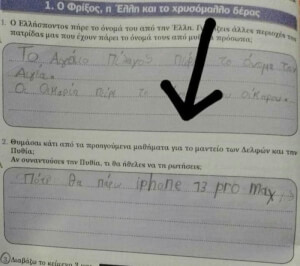 1. Ο Φρίξος, η Έλλη και το χρυσόμαλλο δέρας
1. Ο Ελλήσποντος πήρε το όνομά του από την Έλλη. άλλες περιοχές της
πατρίδας μας που έχουν πάρει το όνομά τους από πρόσωπα;
Το Αιγαίο Πέλαγος το όνομα
Αιγαία.
Ο Ικαρία πήρε το Ίκαρο.
2. Θυμάσαι κάτι από τα προηγούμενα μαθήματα για το μαντείο των Δελφών και την
Πυθία;
Αν συναντούσες την Πυθία, τι θα ήθελες να τη ρωτήσεις;
Πότε θα πάρω iphone 13 pro max;
3 Διαβάζω το κείμενο